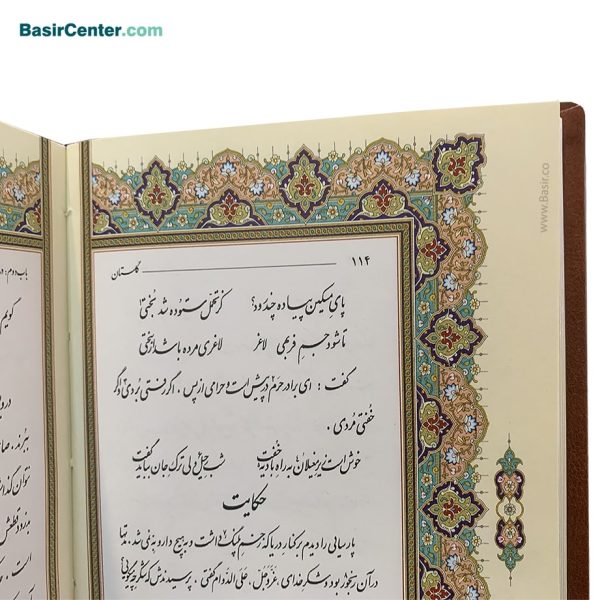 BasirCenter.com
www.Basir.co
۱۱۴ گلستان
پای مسکین پیاده چند رود؟ کز تحمّل ستوده شد بُختی۱
تا شود جسم فربهی لاغر لاغری مرده باشد از سختی
گفت : ای برادر حرم۲ در پیش است و حرامی از پس . اگر رفتی بُردی و اگر
خفتی مُردی .
خوش است زیر مغیلان به راه بادیه خفت شب رحیل ولی ترک جان بباید گفت
حکایت
پارسایی را دیدم بر کنار دریا که زخم پلنگ داشت و به هیچ دارو به نمی شد . مدتها
در آن رنجور بود و شکر خدای ، عَزَّوَجَلَّ ، عَلَی الدَّوام گفتی . پرسیدندش که شکر چه می‌گویی
باب دوم: در
گویم
درو
ببرند.
توان
است .